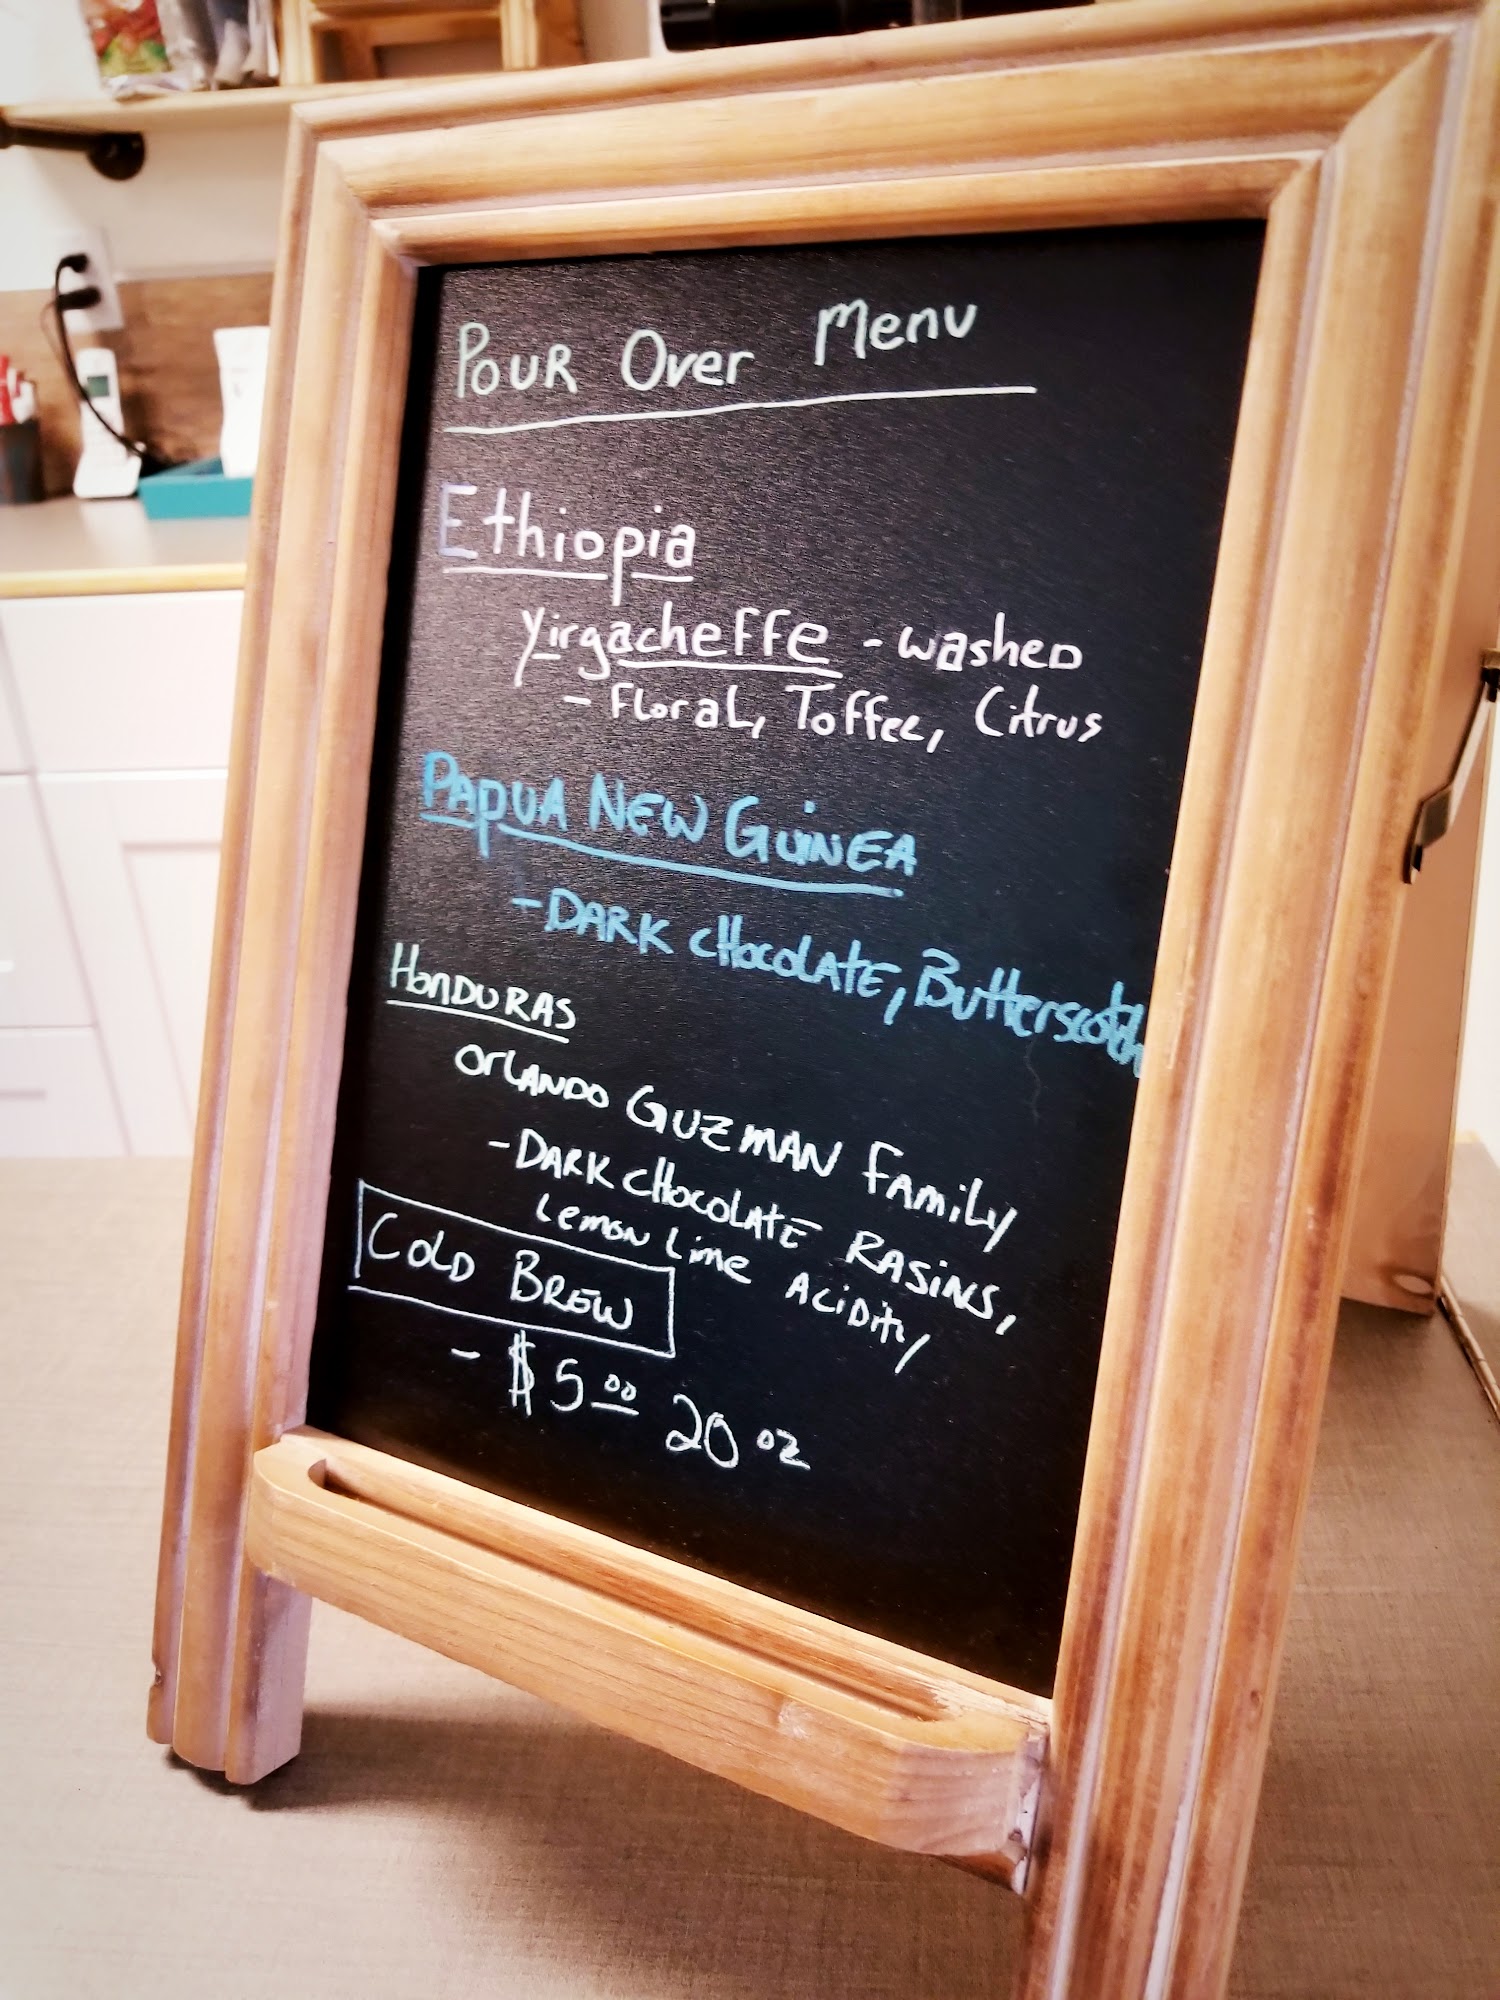 Pour Over Menu
Ethiopia
Yirgacheffe - washed
- Floral, Toffee, Citrus
PAPUA NEW GUINEA
- DARK CHOCOLATE, Butterscotch
HONDURAS
ORLANDO GUZMAN FAMILY
- DARK CHOCOLATE RASINS,
Lemon Lime ACIDITY
COLD BREW
- $5.00 20 oz